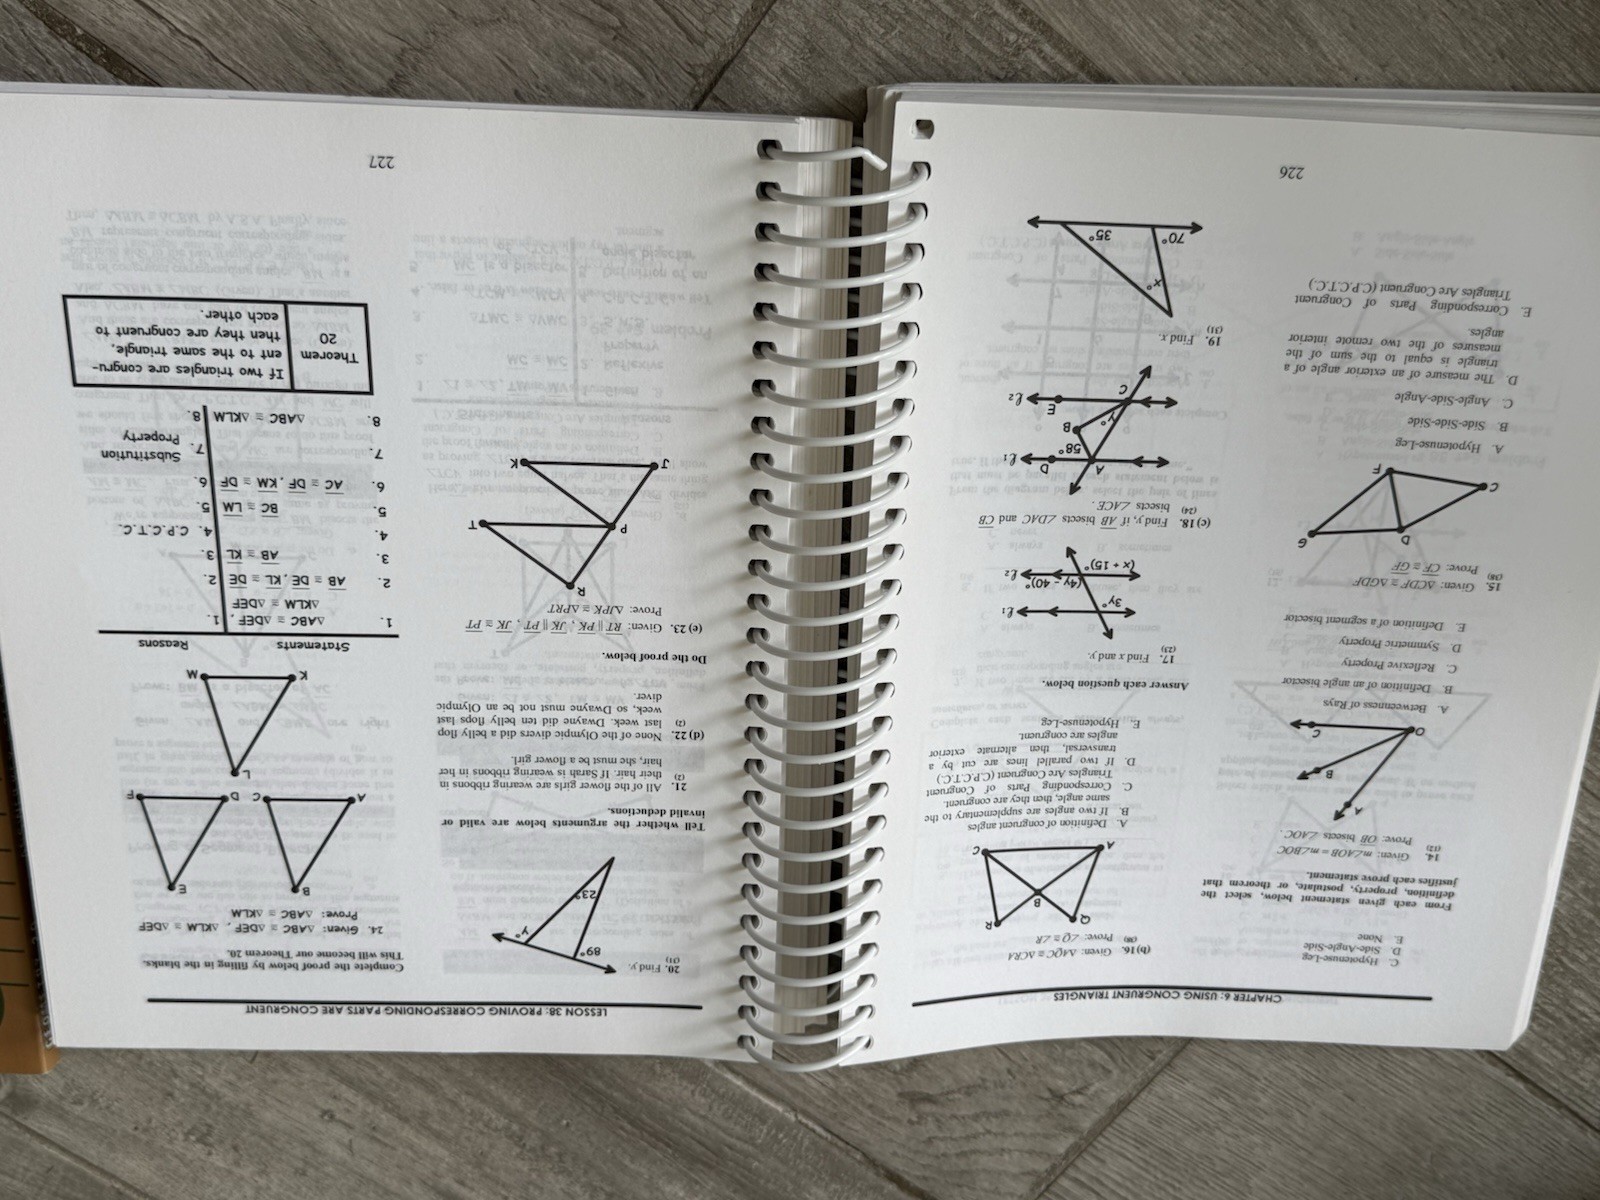 CHAPTER 6: USING CONGRUENT TRIANGLES
C. Hypotenuse-Leg
D. Side-Angle-Side
E. None
From each given statement below, select the
definition, property, postulate, or theorem that
justifies each prove statement.
14. Given: m∠AOB = m∠BOC
(12) Prove: OB bisects ∠AOC.
A
B
O
C
A. Betweenness of Rays
B. Definition of an angle bisector
C. Reflexive Property
D. Symmetric Property
E. Definition of a segment bisector
15. Given: △CDF ≅ △GDF
(38) Prove: CF ≅ GF
D
G
C
F
A. Hypotenuse-Leg
B. Side-Side-Side
C. Angle-Side-Angle
D. The measure of an exterior angle of a
triangle is equal to the sum of the
measures of the two remote interior
angles.
E. Corresponding Parts of Congruent
Triangles Are Congruent (C.P.C.T.C.)
(b) 16. Given: △AQC ≅ △CRA
(38) Prove: ∠Q ≅ ∠R
Q
R
B
A
C
A. Definition of congruent angles
B. If two angles are supplementary to the
same angle, then they are congruent.
C. Corresponding Parts of Congruent
Triangles Are Congruent (C.P.C.T.C.)
D. If two parallel lines are cut by a
transversal, then alternate exterior
angles are congruent.
E. Hypotenuse-Leg
Answer each question below.
17. Find x and y.
(23)
3y°
ℓ1
(4y − 40)°
ℓ2
(x + 15)°
(c) 18. Find y, if AB bisects ∠DAC and CB
(24) bisects ∠ACE.
A
D
ℓ1
58°
B
y°
C
E
ℓ2
19. Find x.
(31)
x°
70°
35°
226
LESSON 38: PROVING CORRESPONDING PARTS ARE CONGRUENT
20. Find y.
(31)
89°
y°
23°
Tell whether the arguments below are valid or
invalid deductions.
21. All of the flower girls are wearing ribbons in
(2) their hair. If Sarah is wearing ribbons in her
hair, she must be a flower girl.
(d) 22. None of the Olympic divers did a belly flop
(2) last week. Dwayne did ten belly flops last
week, so Dwayne must not be an Olympic
diver.
Do the proof below.
(e) 23. Given: RT ∥ PK, JK ∥ PT, JK ≅ PT
Prove: △JPK ≅ △PRT
R
P
T
J
K
Complete the proof below by filling in the blanks.
This will become our Theorem 20.
24. Given: △ABC ≅ △DEF, △KLM ≅ △DEF
Prove: △ABC ≅ △KLM
B
E
A
C
D
F
L
K
M
Statements Reasons
1. △ABC ≅ △DEF, 1.
△KLM ≅ △DEF
2. AB ≅ DE, KL ≅ DE 2.
3. AB ≅ KL 3.
4. 4. C.P.C.T.C.
5. BC ≅ LM 5.
6. AC ≅ DF, KM ≅ DF 6.
7. 7. Substitution
Property
8. △ABC ≅ △KLM 8.
Theorem
20
If two triangles are congru-
ent to the same triangle,
then they are congruent to
each other.
227